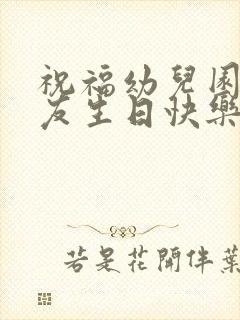 祝福幼兒園
友生日快樂
若是花開伴葉